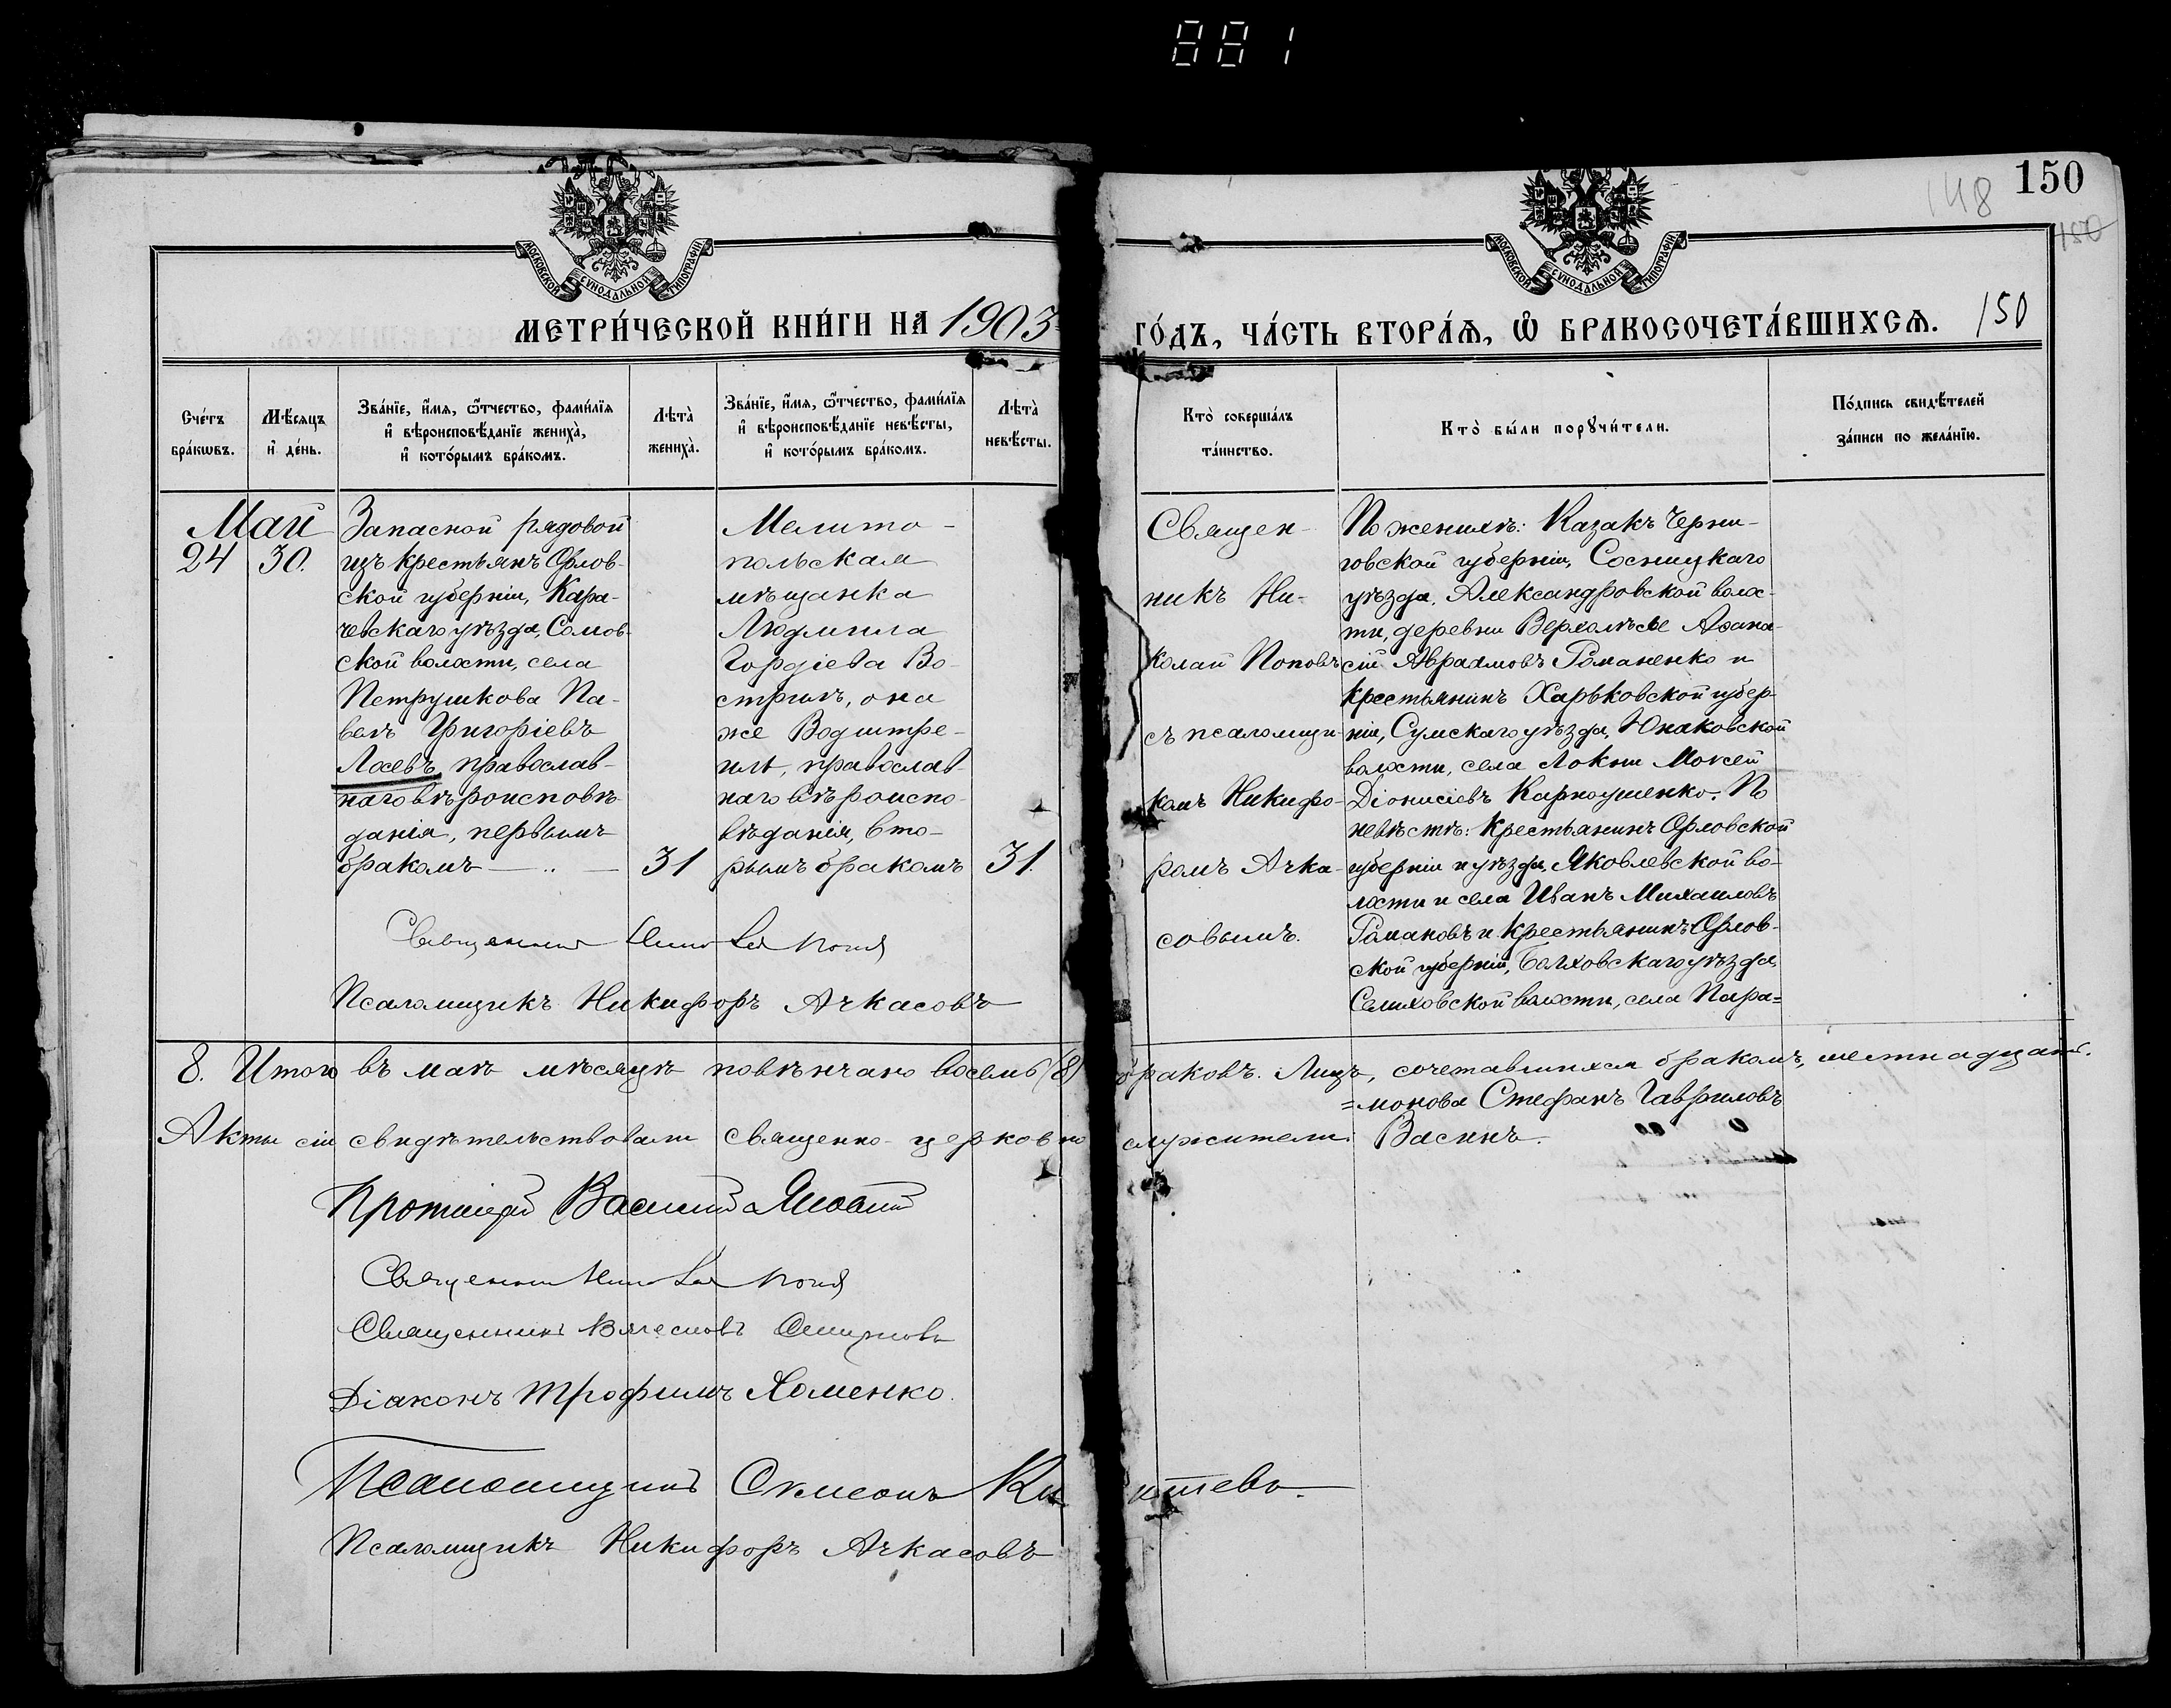 881
150
148
150
МОСКОВСКОЙ СѴНОДАЛЬНОЙ ТИПОГРАФІИ
МОСКОВСКОЙ СѴНОДАЛЬНОЙ ТИПОГРАФІИ
МЕТРИ́ЧЕСКОЙ КНИ́ГИ НА 1903
ГО́ДЪ, ЧА́СТЬ ВТОРА́Ѧ, Ѡ҆ БРАКОСОЧЕТА́ВШИХСѦ. 150
Сче́тъ бра́кѡвъ.
Мѣ́сяцъ и҆ де́нь.
Зва́нїе, и҆́мя, ѻ҆́тчество, фами́лїя и҆ вѣроисповѣ́данїе жениха̀, и҆ кото́рымъ бра́комъ.
Лѣта̀ жениха̀.
Зва́нїе, и҆́мя, ѻ҆́тчество, фами́лїя и҆ вѣроисповѣ́данїе невѣ́сты, и҆ кото́рымъ бра́комъ.
Лѣта̀ невѣ́сты.
Кто̀ соверша́лъ та́инство.
Кто̀ бы́ли порꙋчи́тели.
По́дпись свидѣ́телей за́писи по жела́нїю.
Май
24 30.
Запасной рядовой
изъ крестьянъ Орлов-
ской губерніи, Кара-
чевскаго уѣзда, Сомов-
ской волости, села
Петрушкова Па-
велъ Григоріевъ
Лосевъ, православ-
наго вѣроисповѣ-
данія, первымъ
бракомъ 31
Мелито-
польская
мѣщанка
Людмила
Гордіева Во-
стриль, она
же Водштре-
иль, православ-
наго вѣроиспо-
вѣданія, вто-
рымъ бракомъ 31.
Священ-
никъ Ни-
колай Поповъ
съ псаломщи-
комъ Никифо-
ромъ Ачка-
совымъ.
По женихѣ: Казакъ Черни-
говской губерніи, Сосницкаго
уѣзда, Александровской волос-
ти, деревни Верхолѣсье Аѳана-
сій Авраамовъ Романенко и
крестьянинъ Харьковской губер-
ніи, Сумскаго уѣзда, Юнаковской
волости, села Локни Моисей
Діонисіевъ Карноушенко. По
невѣстѣ: Крестьянинъ Орловской
губерніи и уѣзда, Яковлевской во-
лости и села Иванъ Михаиловъ
Романовъ и крестьянинъ Орлов-
ской губерніи, Болховскаго уѣзда,
Селиховской волости, села Пара=
=монова Стефанъ Гавриловъ
Васинъ.
Священникъ Николай Поповъ
Псаломщикъ Никифоръ Ачкасовъ
8. Итого въ маѣ мѣсяцѣ повѣнчано восемь (8) браковъ. Лицъ, сочетавшихся бракомъ, шестнадцать.
Акты сіи свидѣтельствовали священно-церковно служители:
Протоіерей Василій
Священникъ Николай Поповъ
Священникъ Вячеславъ Смирновъ
Діаконъ Трофимъ Хоменко.
Псаломщикъ Симеонъ
Псаломщикъ Никифоръ Ачкасовъ